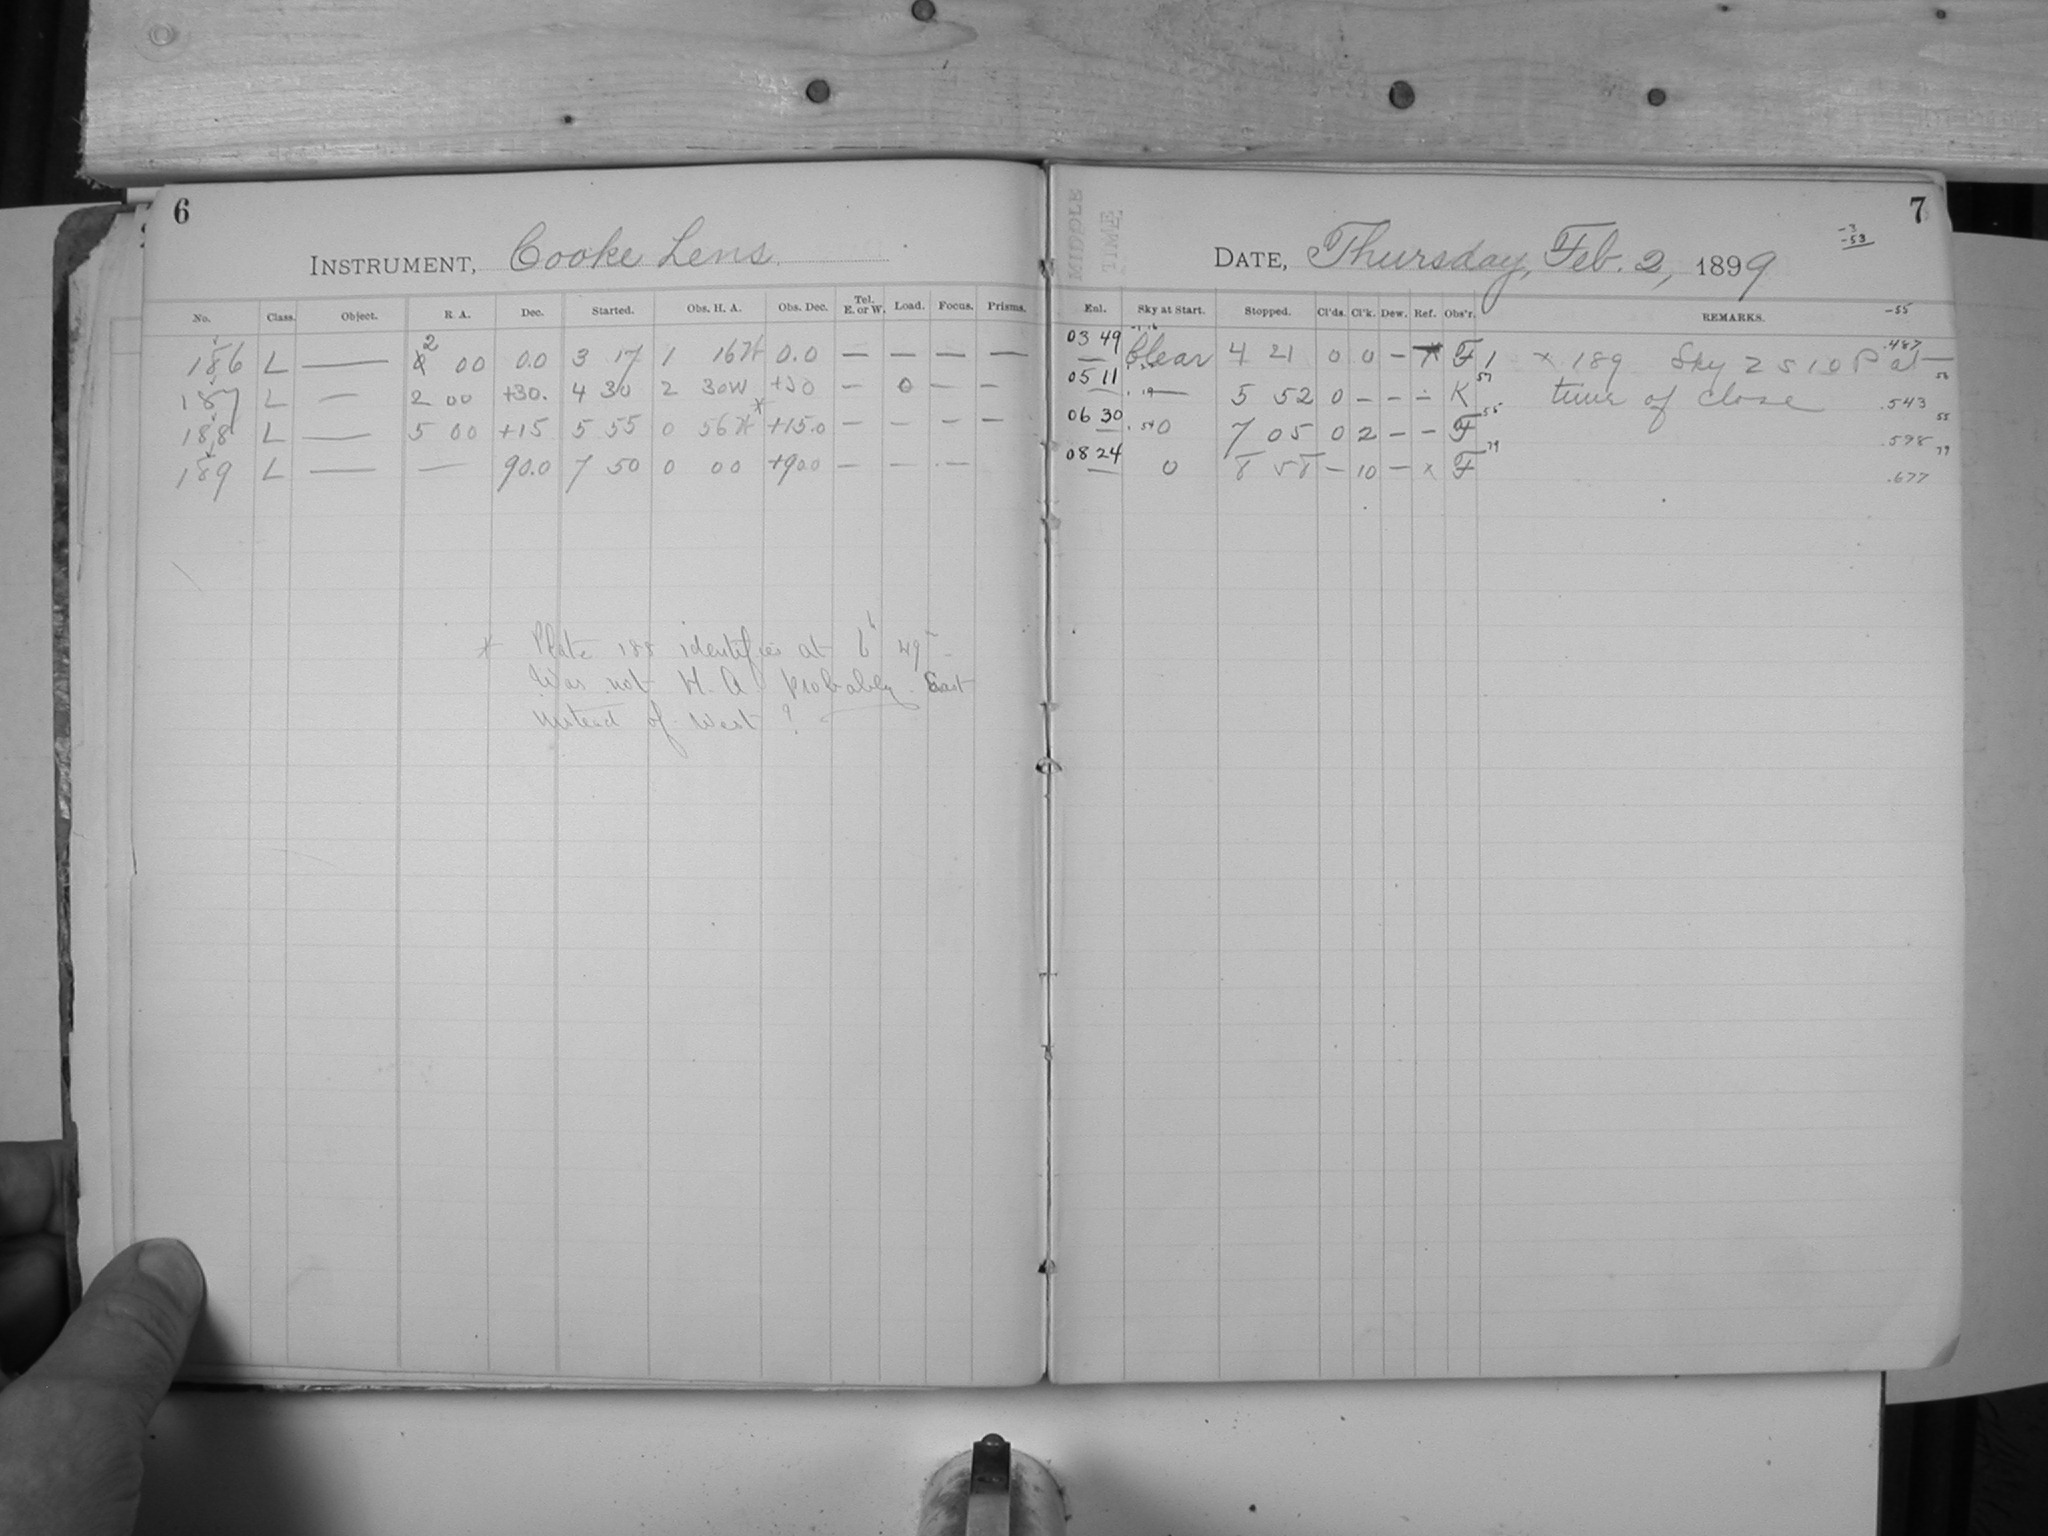 6
INSTRUMENT, Cooke Lens.
No. Class. Object. R. A. Dec. Started. Obs. H. A. Obs. Dec. Tel. E. or W. Load. Focus. Prisms.
186 L — 2 00 0.0 3 17 1 16 W 0.0 — — — —
187 L — 2 00 +30. 4 30 2 30 W +30 — 0 — —
188 L — 5 00 +15 5 55 0 56 W * +15.0 — — — —
189 L — — 90.0 7 50 0 00 +90.0 — — —
* Plate 188 identifies at 6h 49m
Was not H. A. probably East
instead of West ?
7
MIDDLE
TIME
DATE, Thursday, Feb. 2, 1899
-3
-53
Enl. Sky at Start. Stopped. Cl'ds. Cl'k. Dew. Ref. Obs'r. REMARKS. -55
03 49 Clear 4 21 0 0 — F 1 × 189 Sky 2 S 10 P at .487
05 11 — 5 52 0 — — — K 57 time of close .543
06 30 0 7 05 0 2 — — F 55 .598
08 24 0 8 58 — 10 — × F 79 .677